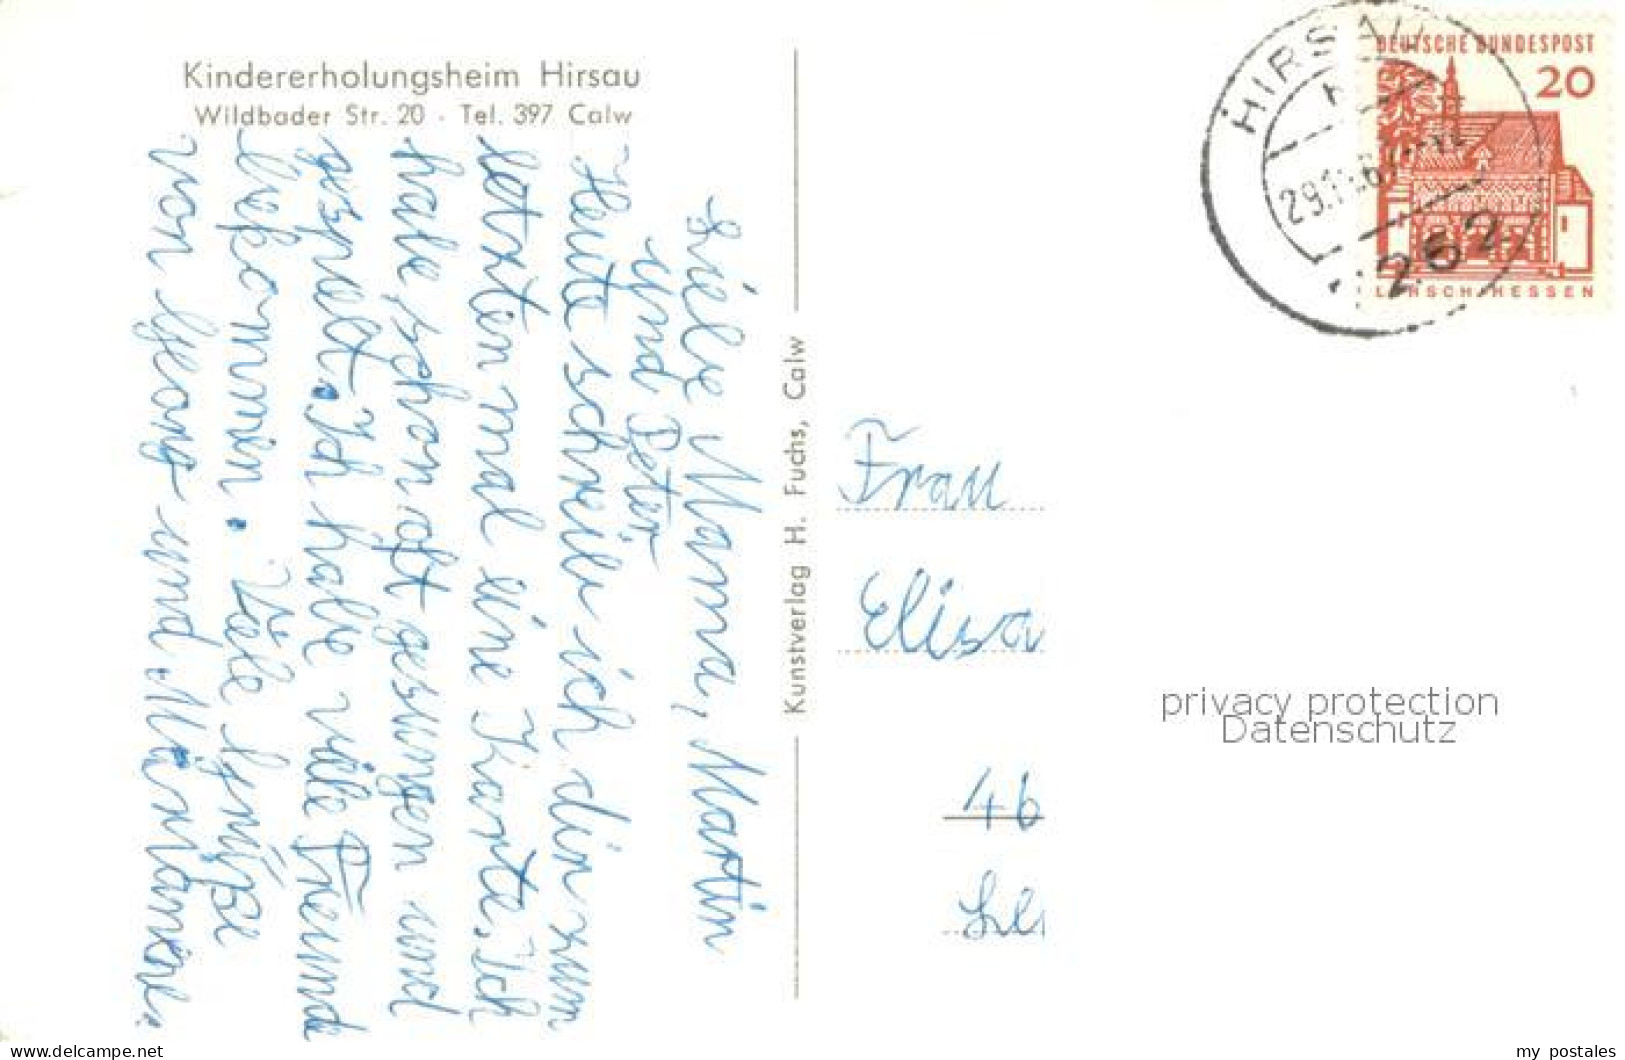 Kindererholungsheim Hirsau
Wildbader Str. 20 - Tel. 397 Calw
Liebe Mama, Martin
und Peter
Heute schreibe ich dir zum
letzten mal eine Karte. Ich
habe schon oft gesungen und
gespielt. Ich habe viele Freunde
bekommen. Viele Grüße
von Georg und Marianne.
Kunstverlag H. Fuchs, Calw
HIRSAU
29.11.67
262
DEUTSCHE BUNDESPOST
20
LORSCH/HESSEN
Frau
Elisa
46
privacy protection
Datenschutz
delcampe.net
my_postales